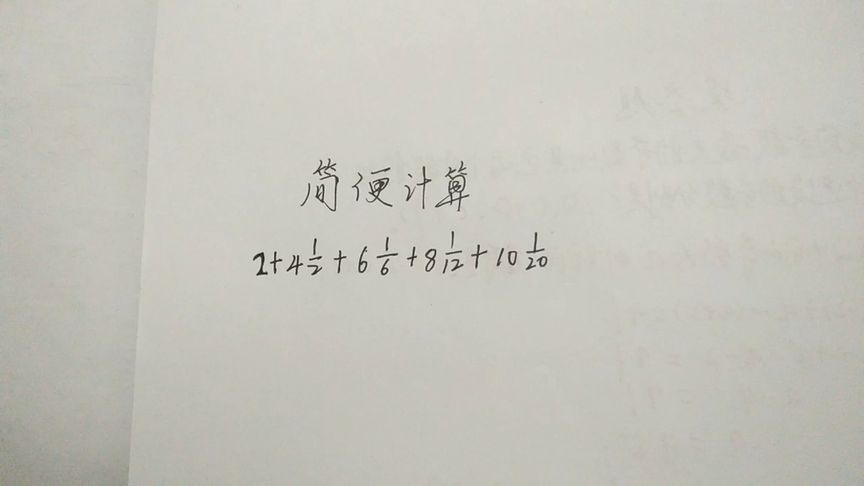 简便计算
2+4 1/2+6 1/6+8 1/12+10 1/20